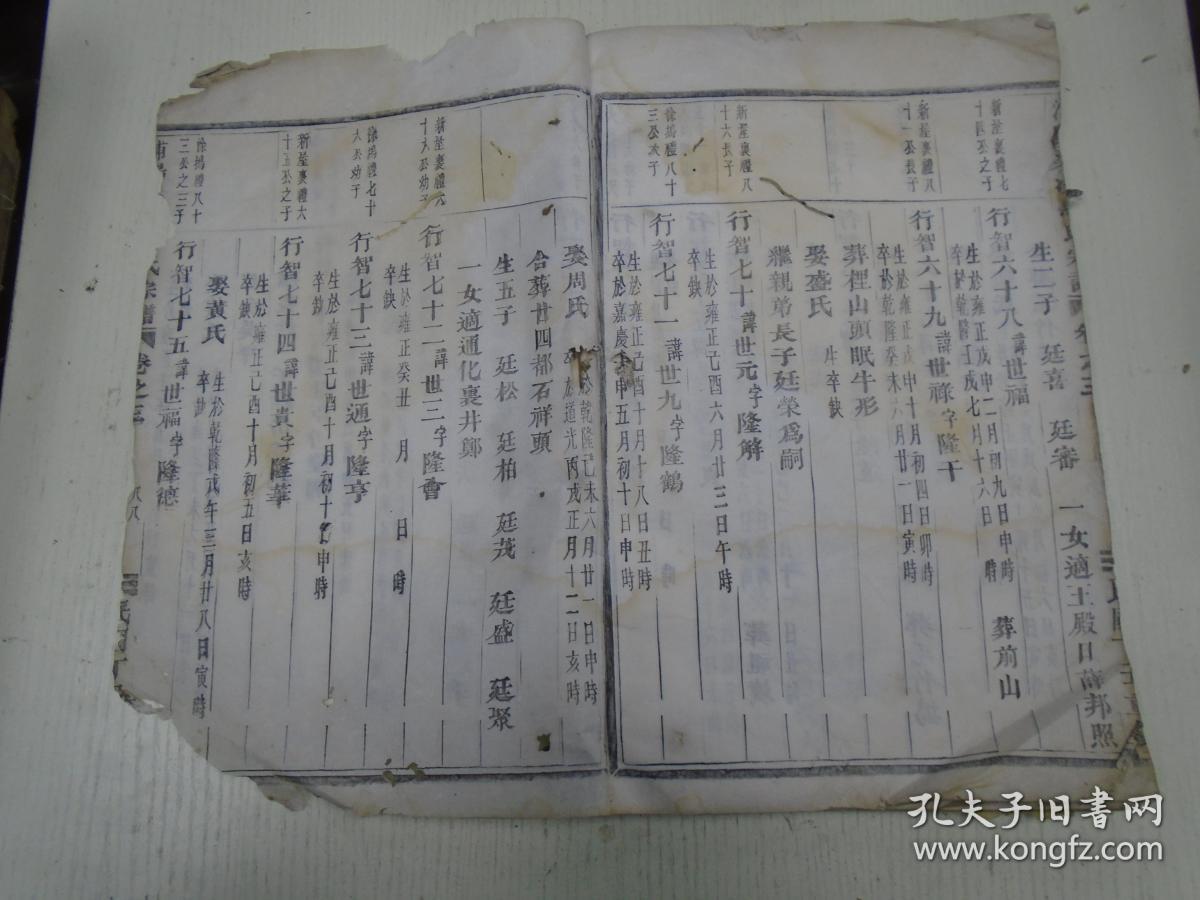 生二子 廷喜 廷審 一女適王殿口薛邦照
新屋裏禮七
十四公長子
行智六十八諱世福
生於雍正戊申二月初九日申時
卒於乾隆壬戌七月十六日 時
葬前山
新屋裏禮八
十一公長子
行智六十九諱世祿字隆干
生於雍正戊申十月初四日卯時
卒於乾隆癸未六月廿一日寅時
葬裡山頭眠牛形
娶盛氏 生卒缺
繼親弟長子廷榮為嗣
新屋裏禮八
十六長子
行智七十諱世元字隆解
生於雍正己酉六月廿三日午時
卒缺
徐塢禮八十
三公次子
行智七十一諱世九字隆鶴
生於雍正己酉十月十八日丑時
卒於嘉慶庚申五月初十日申時
娶周氏
生於乾隆己未六月廿一日申時
卒於道光丙戌正月十二日亥時
合葬廿四都石祥頭
生五子 廷松 廷柏 廷茂 廷盛 廷聚
一女適通化裏井鄭
新屋裏禮六
十六公幼子
行智七十二諱世三字隆會
生於雍正癸丑 月 日 時
卒缺
徐塢禮七十
六公幼子
行智七十三諱世通字隆亨
生於雍正己酉十月初十日申時
卒缺
新屋裏禮六
十五公之子
行智七十四諱世貴字隆華
生於雍正己酉十月初五日亥時
卒缺
娶黃氏
生於乾隆戊午三月廿八日寅時
卒缺
徐塢禮八十
三公之三子
行智七十五諱世福字隆德
氏宗譜 卷之三 八八 民國
孔夫子旧书网
www.kongfz.com